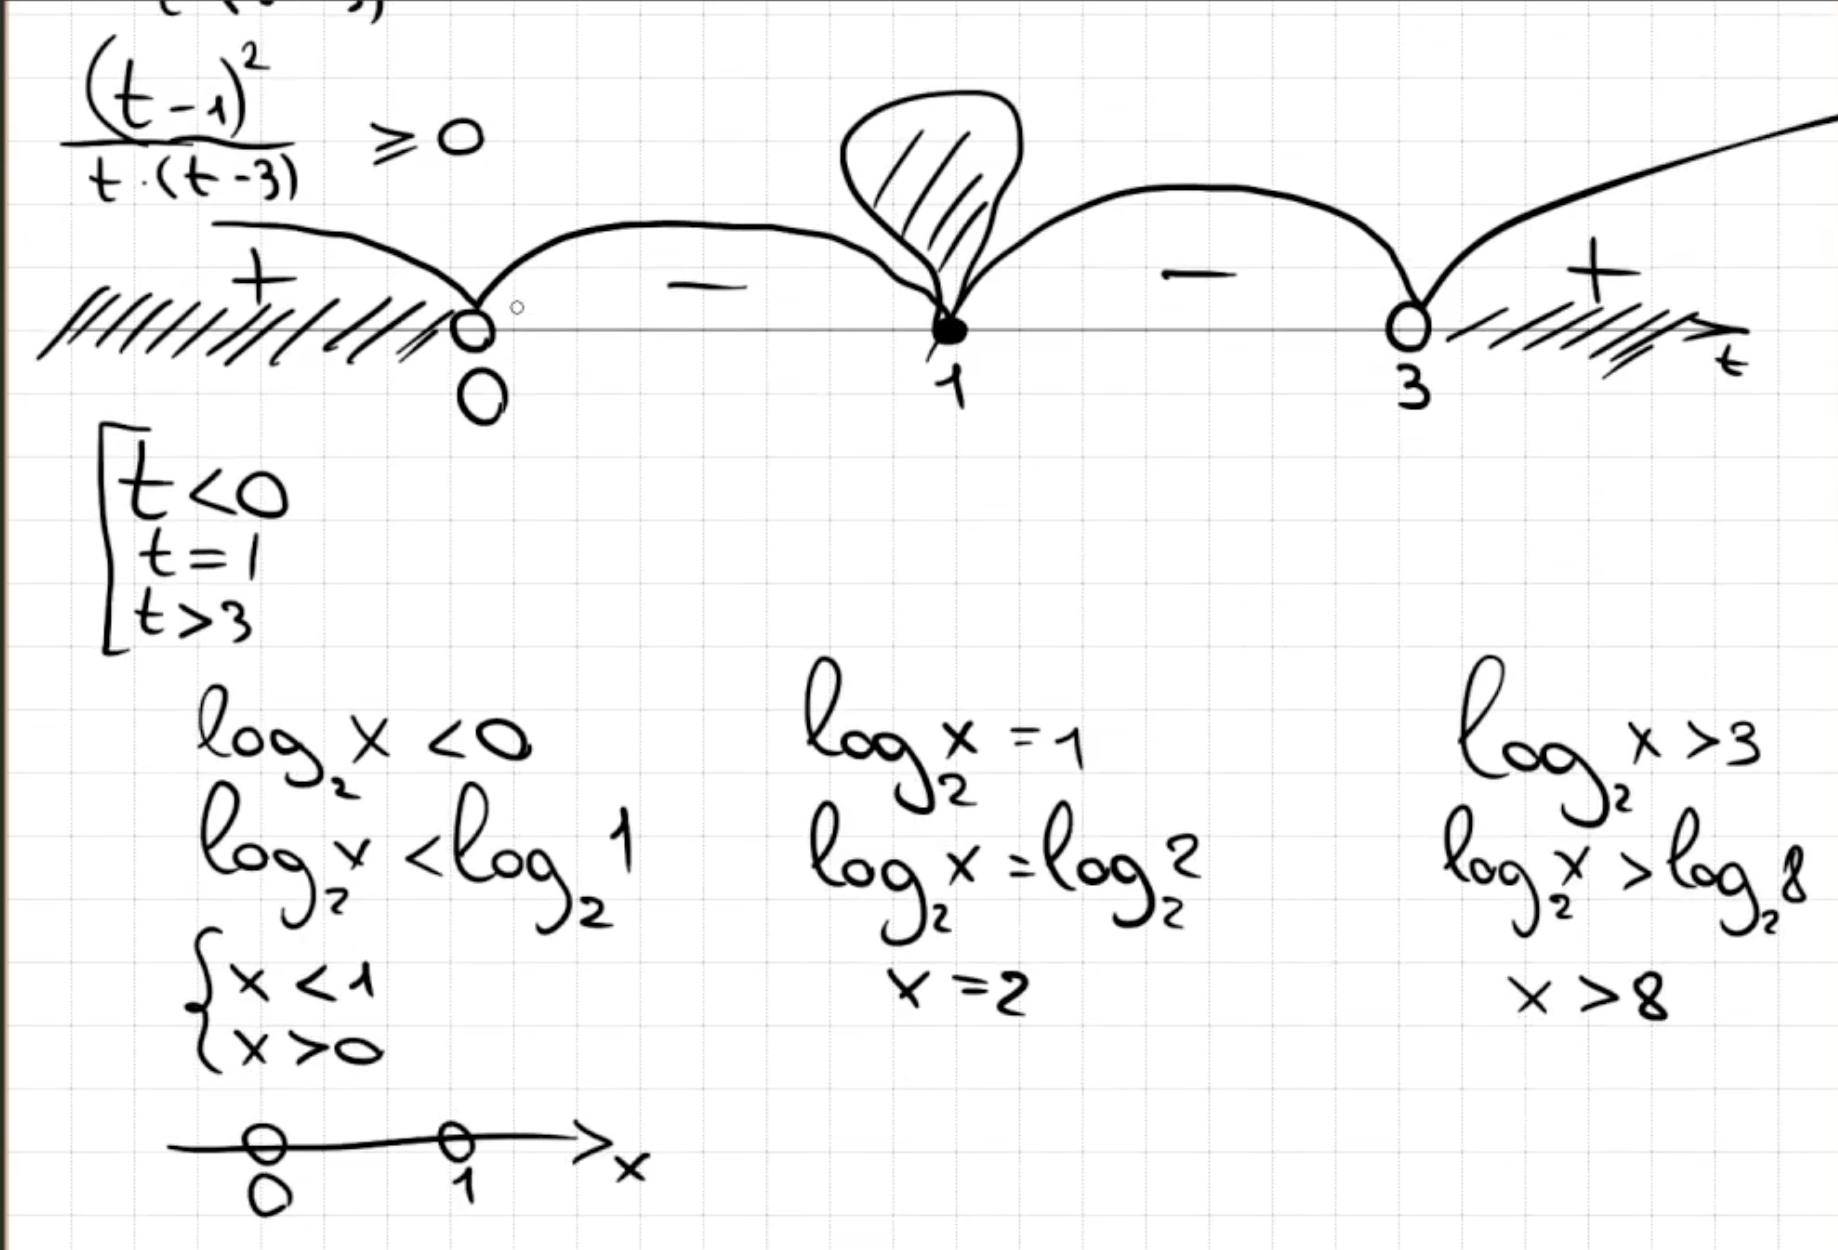 (t-1)²
t·(t-3)
≥ 0
+ − − +
0 1 3 t
t<0
t=1
t>3
log₂ x <0
log₂ x <log₂ 1
x <1
x >0
0 1 x
log₂ x =1
log₂ x =log₂ 2
x =2
log₂ x >3
log₂ x >log₂ 8
x >8